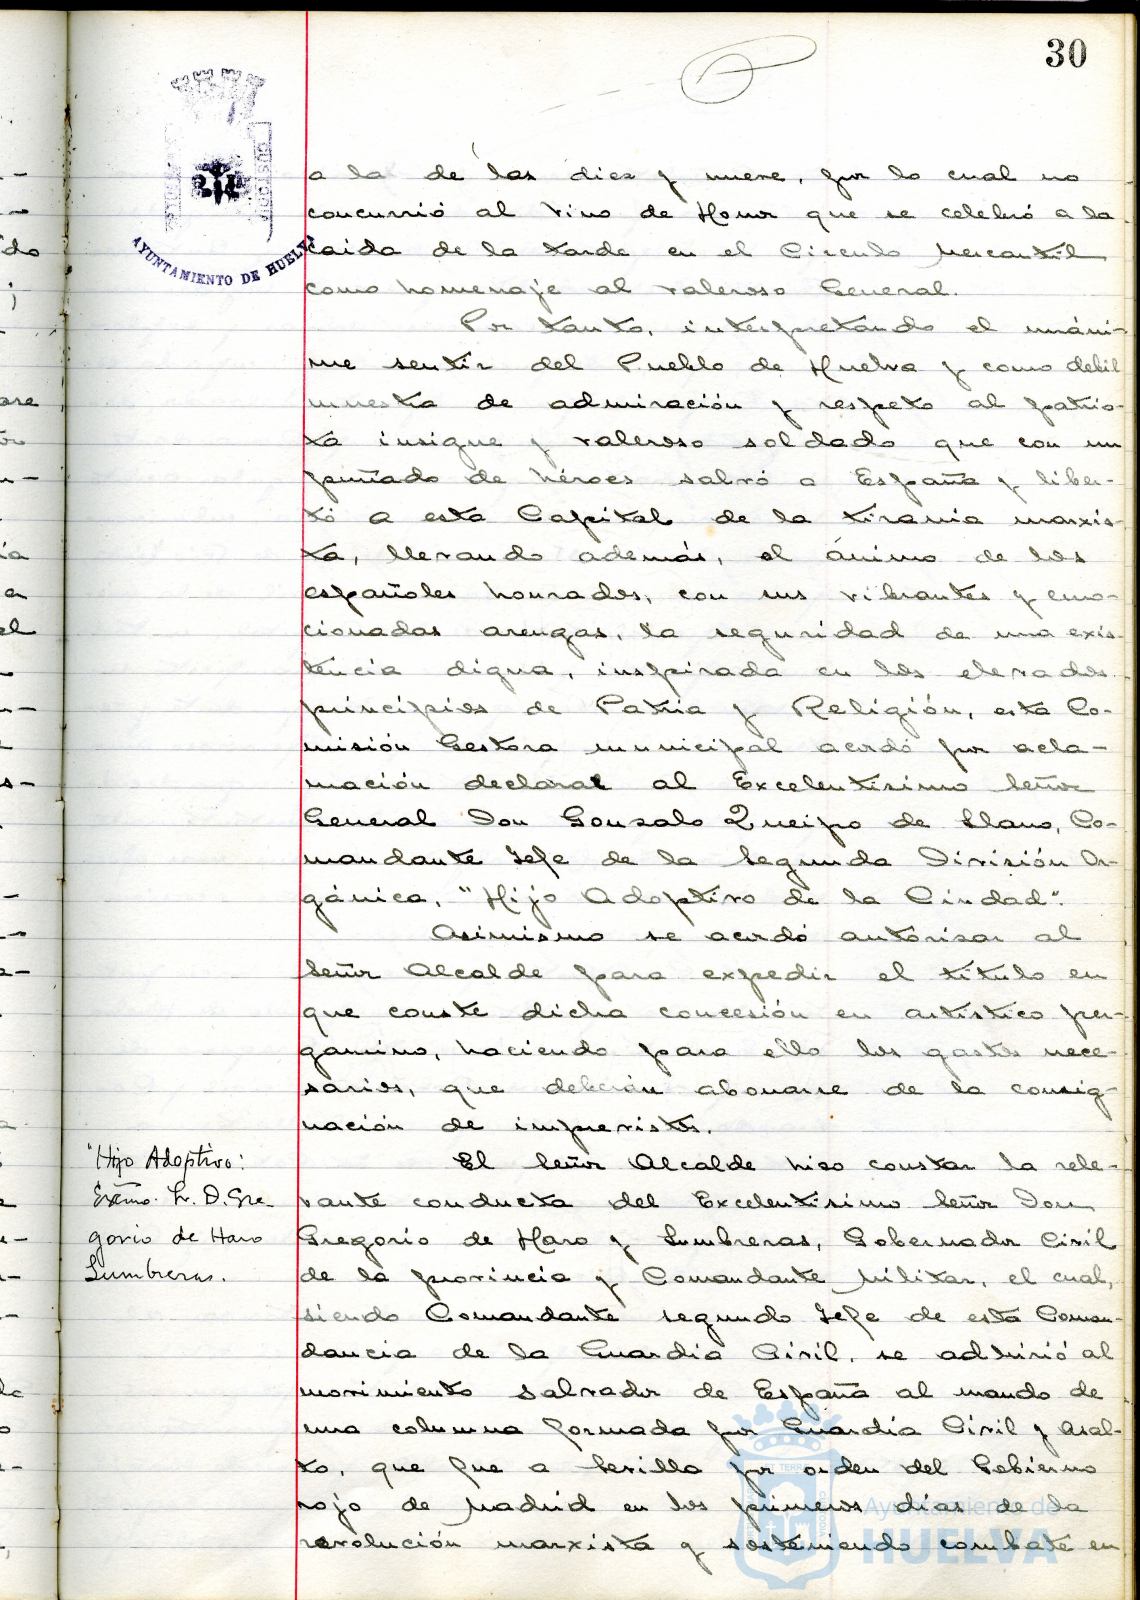 30
AYUNTAMIENTO DE HUELVA
a la de las diez y nueve, por lo cual no
concurrió al Vino de Honor que se celebró a la
caida de la tarde en el Circulo Mercantil
como homenaje al valeroso General.
Por tanto, interpretando el unáni-
me sentir del Pueblo de Huelva y como debil
muestra de admiración y respeto al patrio-
ta insigne y valeroso soldado que con un
puñado de héroes salvó a España y liber-
tó a esta Capital de la tirania marxis-
ta, llevando además, al ánimo de los
españoles honrados, con sus vibrantes y emo-
cionadas arengas, la seguridad de una exis-
tencia digna, inspirada en los elevados
principios de Patria y Religión, esta Co-
misión Gestora municipal acordó por acla-
mación declarar al Excelentisimo Señor
General Don Gonzalo Queipo de Llano, Co-
mandante Jefe de la Segunda División Or-
gánica, "Hijo Adoptivo de la Ciudad".
Asimismo se acordó autorizar al
Señor Alcalde para expedir el titulo en
que conste dicha concesión en artistico per-
gamino, haciendo para ello los gastos nece-
sarios, que deberán abonarse de la consig-
nación de imprevistos.
"Hijo Adoptivo:
Excmo. Sr. D. Gre-
gorio de Haro
Lumbreras.
El Señor Alcalde hizo constar la rele-
vante conducta del Excelentisimo Señor Don
Gregorio de Haro y Lumbreras, Gobernador Civil
de la provincia y Comandante Militar, el cual,
siendo Comandante segundo Jefe de esta Coman-
dancia de la Guardia Civil, se adhirió al
movimiento salvador de España al mando de
una columna formada por Guardia Civil y Asal-
to, que fue a Sevilla por orden del Gobierno
rojo de Madrid en los primeros dias de la
revolución marxista y sosteniendo combate en
Ayuntamiento de
HUELVA